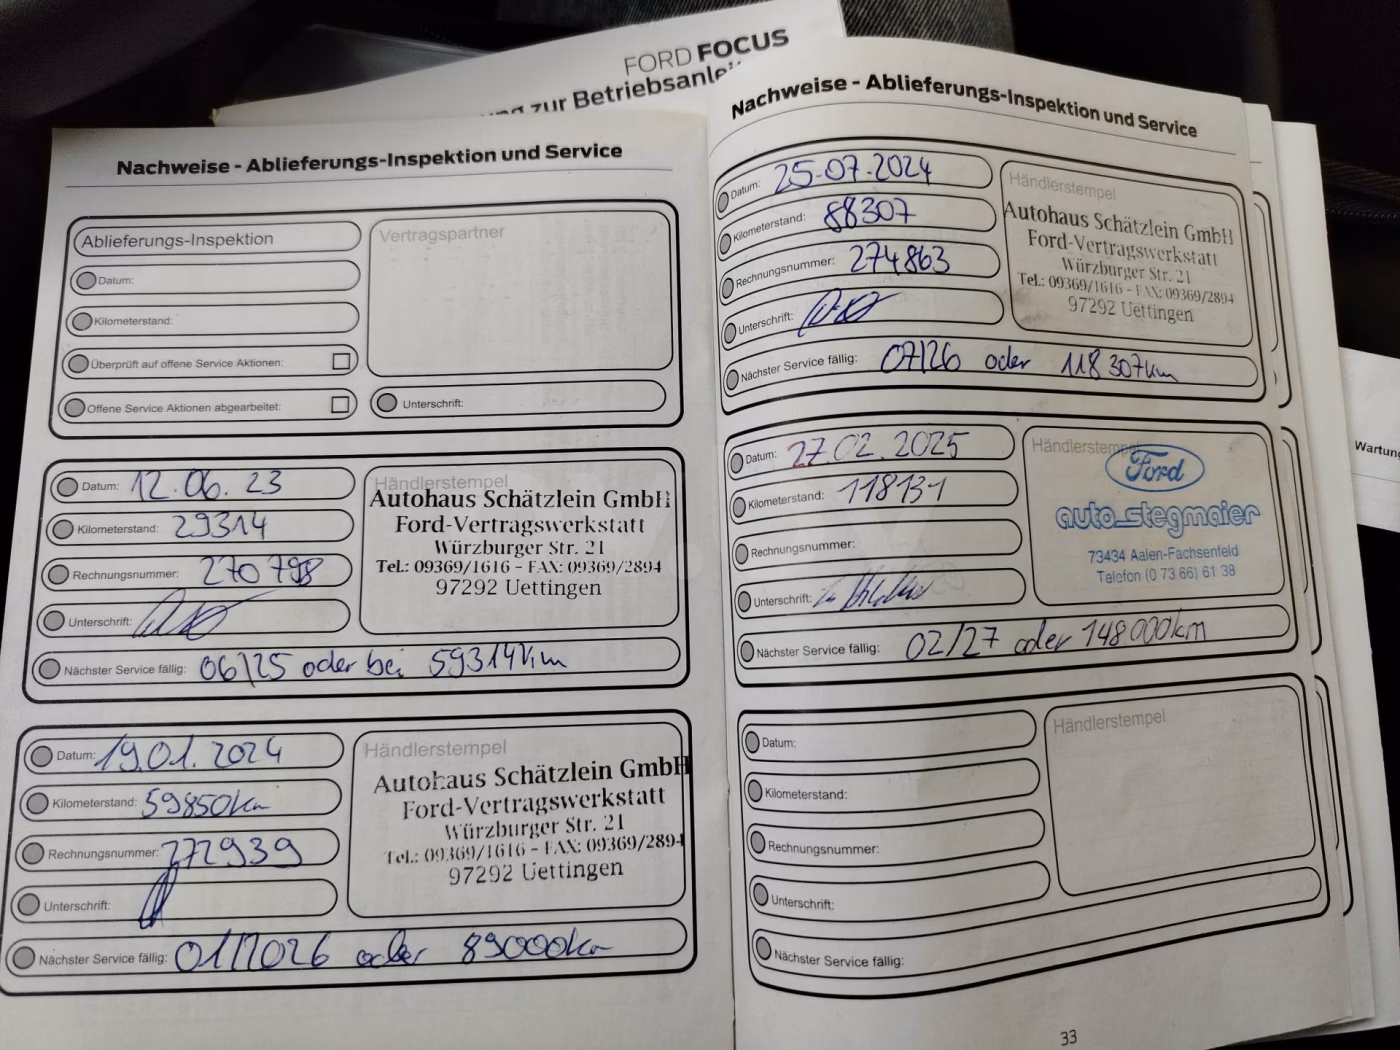 FORD FOCUS
zur Betriebsanlei
Nachweise - Ablieferungs-Inspektion und Service
Ablieferungs-Inspektion
Datum:
Kilometerstand:
Überprüft auf offene Service Aktionen:
Offene Service Aktionen abgearbeitet:
Vertragspartner
Unterschrift:
Datum: 12.06.23
Kilometerstand: 29314
Rechnungsnummer: 270798
Unterschrift:
Händlerstempel
Autohaus Schätzlein GmbH
Ford-Vertragswerkstatt
Würzburger Str. 21
Tel.: 09369/1616 - FAX: 09369/2894
97292 Uettingen
Nächster Service fällig: 06/25 oder bei 59314km
Datum: 19.01.2024
Kilometerstand: 59850km
Rechnungsnummer: 272939
Unterschrift:
Händlerstempel
Autohaus Schätzlein GmbH
Ford-Vertragswerkstatt
Würzburger Str. 21
Tel.: 09369/1616 - FAX: 09369/2894
97292 Uettingen
Nächster Service fällig: 01/2026 oder 89000km
Nachweise - Ablieferungs-Inspektion und Service
Datum: 25.07.2024
Kilometerstand: 88307
Rechnungsnummer: 274863
Unterschrift:
Händlerstempel
Autohaus Schätzlein GmbH
Ford-Vertragswerkstatt
Würzburger Str. 21
Tel.: 09369/1616 - FAX: 09369/2894
97292 Uettingen
Nächster Service fällig: 07/26 oder 118307km
Datum: 27.02.2025
Kilometerstand: 118131
Rechnungsnummer:
Unterschrift:
Händlerstempel
Ford
auto-stegmaier
73434 Aalen-Fachsenfeld
Telefon (0 73 66) 61 38
Nächster Service fällig: 02/27 oder 148.000km
Datum:
Kilometerstand:
Rechnungsnummer:
Unterschrift:
Händlerstempel
Nächster Service fällig:
33
Wartung